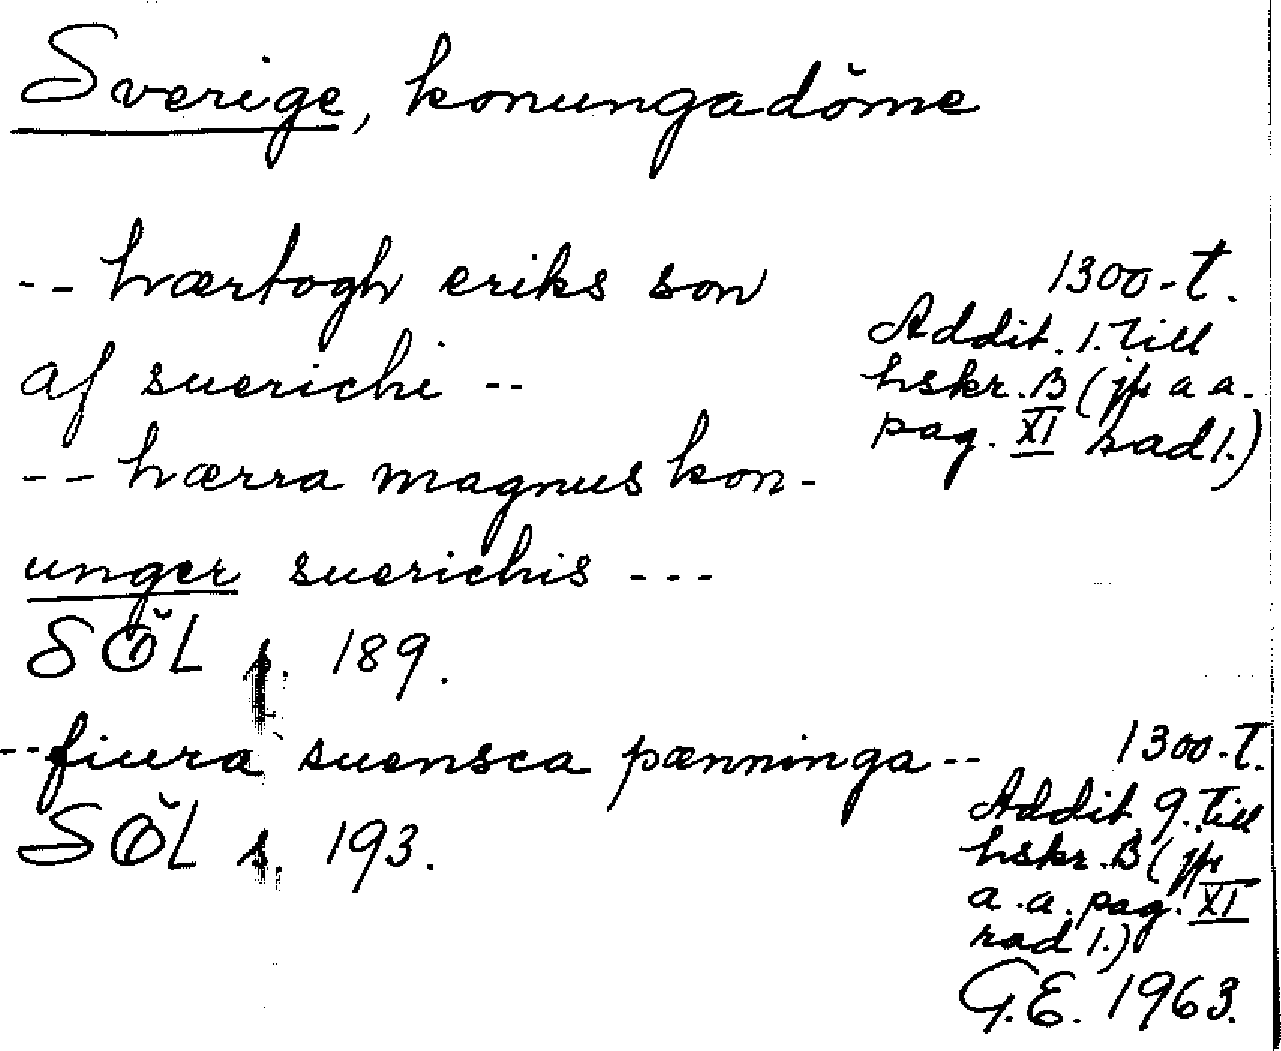 Sverige, konungadöme
-- hærtogh eriks son
af suerichi --
-- hærra magnus kon-
unger suerichis ---
SÖL s. 189.
1300-t.
Addit. 1. till
hskr. B (jfr a a.
pag. XI rad 1.)
--fiura suensca pænninga--
SÖL s. 193.
1300-t.
Addit. 9. till
hskr. B (jfr
a.a. pag. XI
rad 1.)
G.E. 1963.